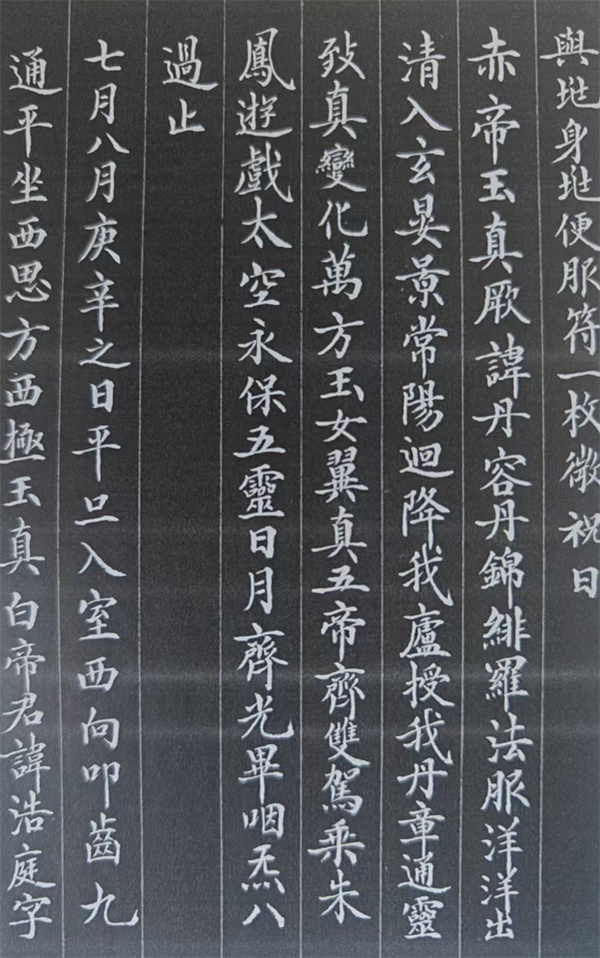 與地身地便服符一枚微祝曰
赤帝玉真厥諱丹容丹錦緋羅法服洋洋出
清入玄晏景常陽迴降我廬授我丹章通靈
致真變化萬方玉女翼真五帝齊雙駕乘朱
鳳遊戲太空永保五靈日月齊光畢咽炁八
過止
七月八月庚辛之日平旦入室西向叩齒九
通平坐西思方西極玉真白帝君諱浩庭字